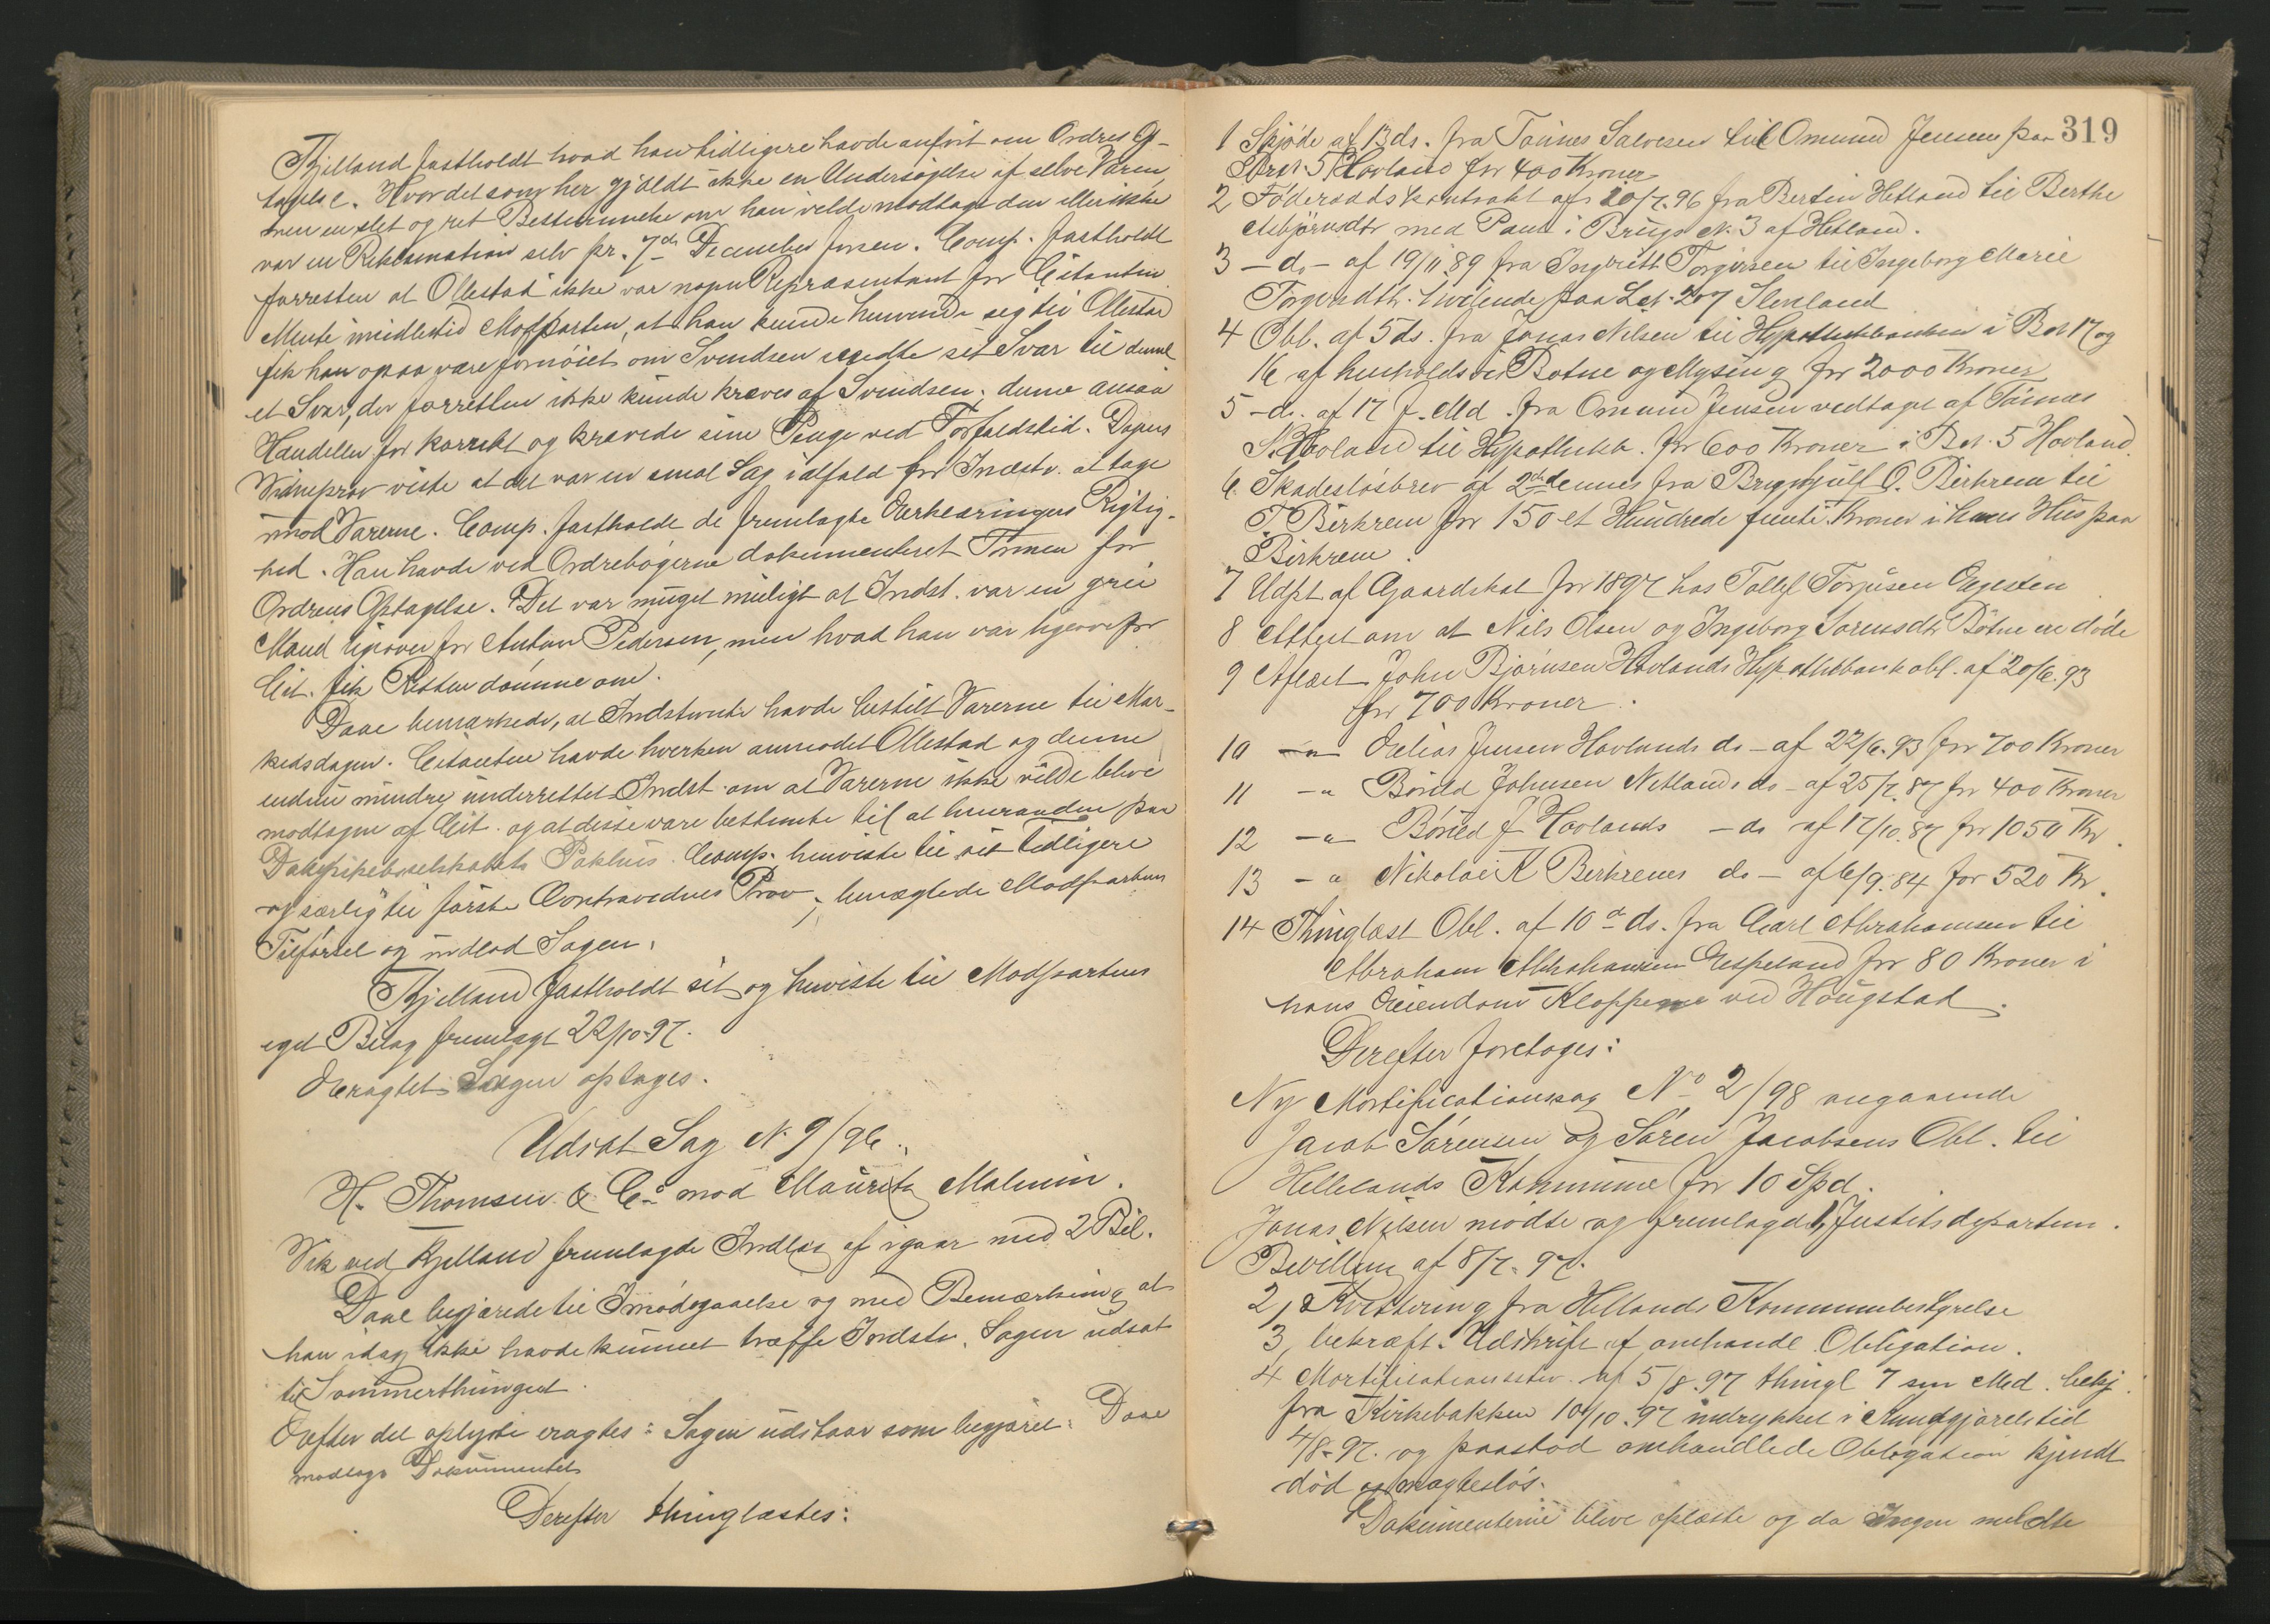 Kjelland fastholdt hvad han tidligere havde anført om Ordres Op-
tagelse. Hvor det som her gjældt ikke en Undersøgelse af selve Varen,
men en slet og ret Bestemmelse om han vilde modtage den eller ikke
var en Reklamation selv pr. 7de December forsen. Comp. fastholdt
forresten at Ollestad ikke var nogen Repræsentant for Citanten
Mente imidlertid Modparten, at han kunde henvende seg til Ollestad
fik han ogsaa være fornøiet om Svendsen sendte sit Svar til denne
et Svar, der forresten ikke kunde kræves af Svendsen; denne ansaa
Handelen for korrekt og krævede sine Penge ved Forfaldstid. Dagens
Vidneprov viste at det var en smal Sag idfald for Indstv. at tage
mod Varerne. Comp. fastholdt de fremlagte Erklæringers Rigtig-
hed. Han havde ved Ordrebøgerne dokumenteret Formen for
Ordrens Optagelse. Det var muget muligt at Indst. var en grei
Mand ligeover for Anton Pedersen, men hvad han var ligeoverfor
Cit. fik Retten dømme om.
Daae bemærkede, at Indstevnte havde bestilt Varerne til Mar-
kedsdagen. Citanten havde hverken anmodet Ollestad og denne
endnu mindre underrettet Indst. om at Varerne ikke vilde blive
modtagne af Cit. og at disse vare bestemte til at henraadne paa
Dampskibsselskabets Pakhus. Comp. henviste til sit tidligere
og særlig til første Contravidnes Prov; benægtede Modpartens
Tilførsel og indlod Sagen.
Kjelland fastholdt sit og henviste til Modpartens
eget Bilag fremlagt 22/10-97.
Eragtet: Sagen optages.
Udsat Sag N. 9/96.
H. Thomsen & Co mod Mauritz Malmin.
Vik ved Kjelland fremlagde Indlæg af igaar med 2 Bil.
Daae begjærede til Imødegaaelse og med Bemærkning at
han idag ikke havde kunnet træffe Indstv. Sagen udsat
til Sommerthinget.
Efter det oplyste eragtes: Sagen udstaar som begjæret. Daae
modtog Dokumentet.
Derefter thinglæstes:
319
1 Skjøde af 13 ds. fra Tønnes Salvesen til Omund Jensen paa
Brn. 5 Hovland for 400 Kroner
2 Føderaadskontrakt af 20/7.96 fra Bertin Hetland til Berthe
Asbjørnsdtr med Pant i Brugs N. 3 af Hetland.
3 - do - af 19/11 89 fra Ingvritt Torgersen til Ingeborg Marie
Torgersdtr. hvilende paa L.nr. 207 Sleveland
4 Obl. af 5 ds. fra Jonas Nilsen til Hypothekbanken i Bn 17 og
16 af henholdsvis Botne og Mysing for 2000 Kroner
5 - do. af 17 f. Md. fra Omund Jensen vedtaget af Tønnes
S. Hovland til Hypothekb. for 600 Kroner i Bn. 5 Hovland.
6. Skadesløsbrev af 2den dennes fra Brynjulf O. Birkrem til
T. Birkrem for 150 et Hundrede femti Kroner i hans Hus paa
Birkrem.
7 Udpt. af Gaardskat for 1897 hos Tollef Torjusen Eegesten
8 Attest om at Nils Olsen og Ingeborg Sørensdtr Botne ere døde
9 Aflæst John Bjørnsen Hovlands Hypothekbankobl. af 20/6.93
for 700 Kroner.
10 -"- Elias Jensen Hovlands do - af 22/6.93 for 700 Kroner
11 -"- Børild Johnsen Netlands do - af 25/7.87 for 400 Kroner
12 -"- Børild J Hovlands - do af 17/10.87 for 1050 Kr.
13 -"- Nikolai K Birkrems do - af 6/9.84 for 520 Kr.
14 Thinglæst Obl. af 10de ds. fra Carl Abrahamsen til
Abraham Abrahamsen Espeland for 80 Kroner i
hans Eiendom Kloppene ved Hougstad.
Derefter foretoges:
Ny Mortificationssag No 2/98 angaaende
Jacob Sørensen og Søren Jacobsens Obl. til
Hellelands Kommune for 10 Spd.
Jonas Nilsen mødte og fremlagde 1, Justitsdepartem.
Bevilling af 8/7.97.
2, Kvittering fra Hellands Kommunebestyrelse
3, bekræft. Udskrift af omhandl. Obligation.
4 Mortificationsstev. af 5/8.97 thingl 7 sm Md. bekj.
fra Kirkebakken 10/10.97 indrykket i Kundgjørelstid
4/8-97. og paastod omhandlede Obligation kjendt
død og magtesløs.
Dokumenterne bleve oplæste og da Ingen meldte